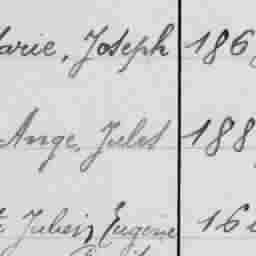 arie, Joseph 186
Ange, Jules 188
Julien, Eugène 16